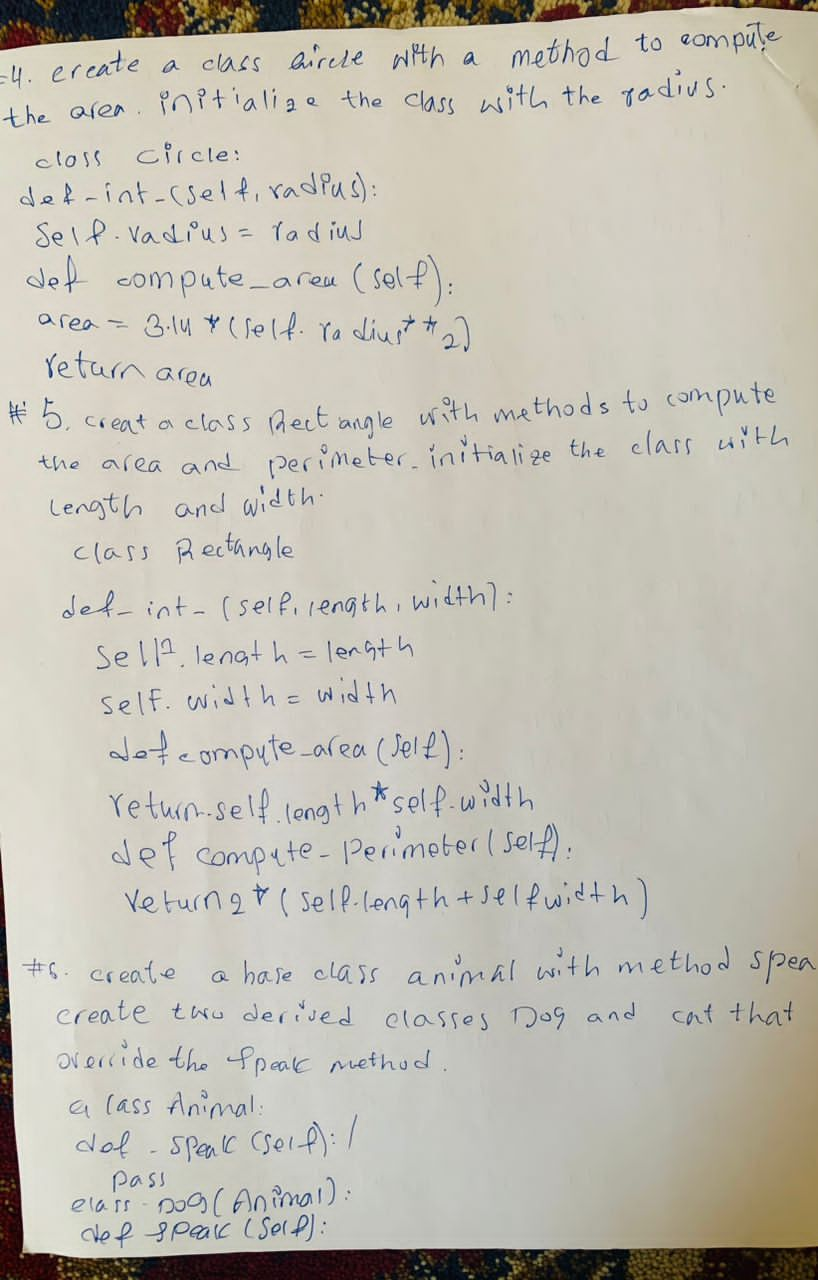 4. create a class circle with a method to compute
the area. initialize the class with the radius.
class circle:
def_int_(self, radius):
Self.radius = radius
def compute_area (self):
area = 3.14 * (self. radius**2)
return area
# 5. creat a class Rectangle with methods to compute
the area and perimeter. initialize the class with
Length and width.
class Rectangle
def_int_ (self, length, width):
self.length = length
self. width = width
def compute_area (self):
return.self.length*self.width
def compute_Perimeter (self):
return 2* (self.length + self width)
#6. create a base class animal with method spea
create two derived classes Dog and cat that
override the speak method.
class Animal:
def _ speak (self): /
pass
class Dog (Animal):
def speak (self):